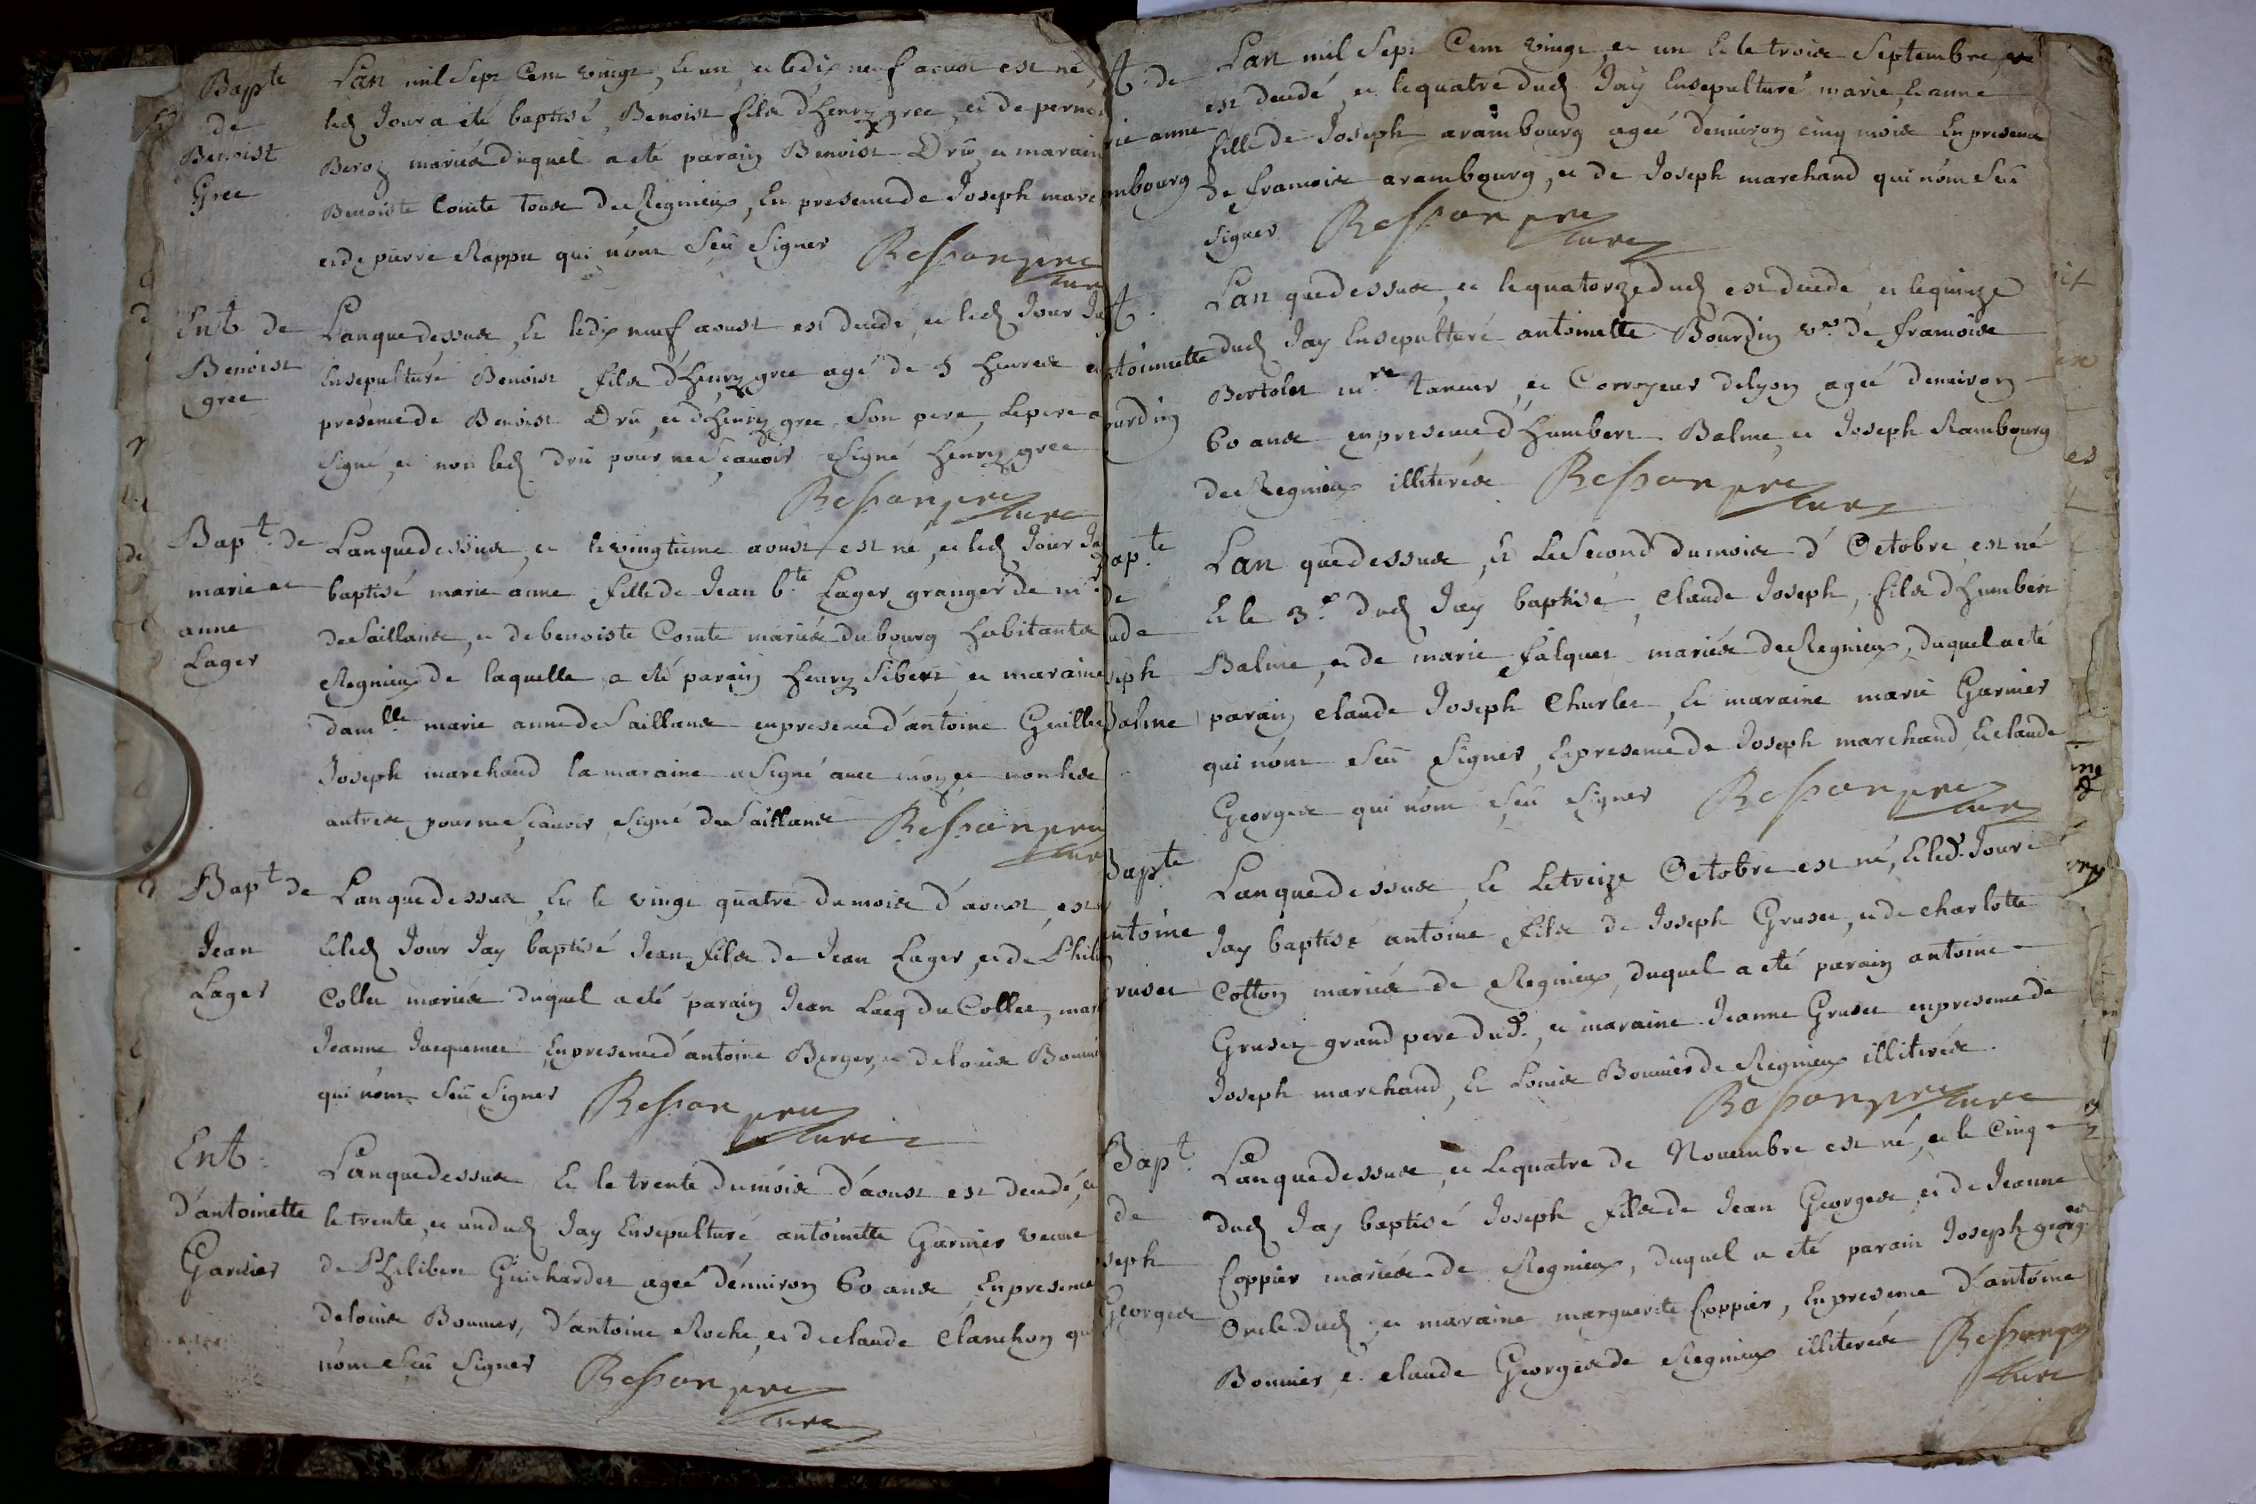 Bapte
de
Benoist
Gree
Lan mil Sept Cent vingt, et un, et le dix neuf aoust est né,
led Jour a été baptisé, Benoist fils d'henry gree, et de perne
Beroz mariés duquel a été parain Benoist Dru, et marain
Benoiste Comte tous de Regnieux, En presence de Joseph marc
et de pierre Rappu qui n'ont Seû Signer
Entt de
Benoist
gree
Lan que dessus, Et le dix neuf aoust est decedé, et led Jour Ja
Ensepulturé Benoist fils d'henry gree agé de 5 heures e
presence de Benoist Dru, et d'henry gree Son pere, Le pere a
Signé, et non led Dru pour ne Sçauoir Signé henry gree
Bapt de
marie et
anne
Lager
Lan que dessus, et le vingtieme aoust est né, et led Jour Ja
baptisé marie anne fille de Jean bte Lager granger de mr
de Saillans, et de benoiste Comte mariés du bourg habitants
Regnieux de laquelle a été parain henry Sibert et maraine
damlle marie anne de Saillans en presence d'antoine Genille
Joseph marchand la maraine a Signé auec moy et non les
autres pour ne Sçauoir Signé De Saillans
Bapt de
Jean
Lager
Lan que dessus, Et le vingt quatre du mois d'aoust, est
Et led Jour Jay baptisé Jean fils de Jean Lager, et de Phili
Collet mariés duquel a été parain Jean Lacq du Collet, mar
Jeanne Jacquemet En presence d'antoine Berger, et de louis Bouui
qui n'ont Seû Signer
Ent
d'antoinette
Garnier
Lan que dessus Et le trente du mois d'aoust est decedé, et
le trente, et un dud Jay Ensepulturé antoinette Garnier veuue
de Philibert Guichardet ageé d'enuiron 60 ans En presence
de louis Bouuier, d'antoine Roche, et de claude Clanchon qui
n'ont Seû Signer
t de
rie anne
mbourg
Lan mil Sept Cent vingt, et un Et le trois Septembre,
est decedé, et le quatre dud Jay Ensepulturé marie, Et anne
fille de Joseph arambourg ageé d'enuiron cinq mois En presence
de francois arambourg, et de Joseph marchand qui n'ont Seû
Signer
t
ntoinette
ourdin
Lan que dessus, et le quatorze dud est decedé, et le quinze
dud Jay Ensepulturé antoinette Bourdin ve de francois
Bertolet mre taneur, et Corroyeur de lyon ageé d'enuiron
60 ans en presence d'humbert Balme, et Joseph Rambourg
de Regnieux illiterés
Bapte
de
ude
seph
Balme
Lan que dessus, Et Le Second du mois d'Octobre est né
Et le 3e dud Jay baptisé, Claude Joseph, fils d'humbert
Balme, et de marie falquet mariés de Regnieux, duquel a eté
parain Claude Joseph Charlet, Et maraine marie Garnier
qui n'ont Seû Signer, En presence de Joseph marchand, Et claude
Georges qui n'ont Seû Signer
Bapte
antoine
Gruset
Lan que dessus, Et Le treize Octobre est né, Et led. Jour
Jay baptisé antoine fils de Joseph Gruset, et de charlotte
Cotton mariés de Regnieux, duquel a eté parain antoine
Gruset grand pere dud., et maraine Jeanne Gruset en presence de
Joseph marchand, Et Louis Bouuier de Regnieux illiterés.
Bapt
de
seph
Georges
Lan que dessus, et Le quatre de Nouembre est né, et le Cinq
dud Jay baptisé Joseph fils de Jean Georges, et de Jeanne
Coppier mariés de Regnieux, duquel a eté parain Joseph georges
Oncle dud, et maraine marguerite Coppier, En presence d'antoine
Bouuier, et claude Georges de Regnieux illiterés